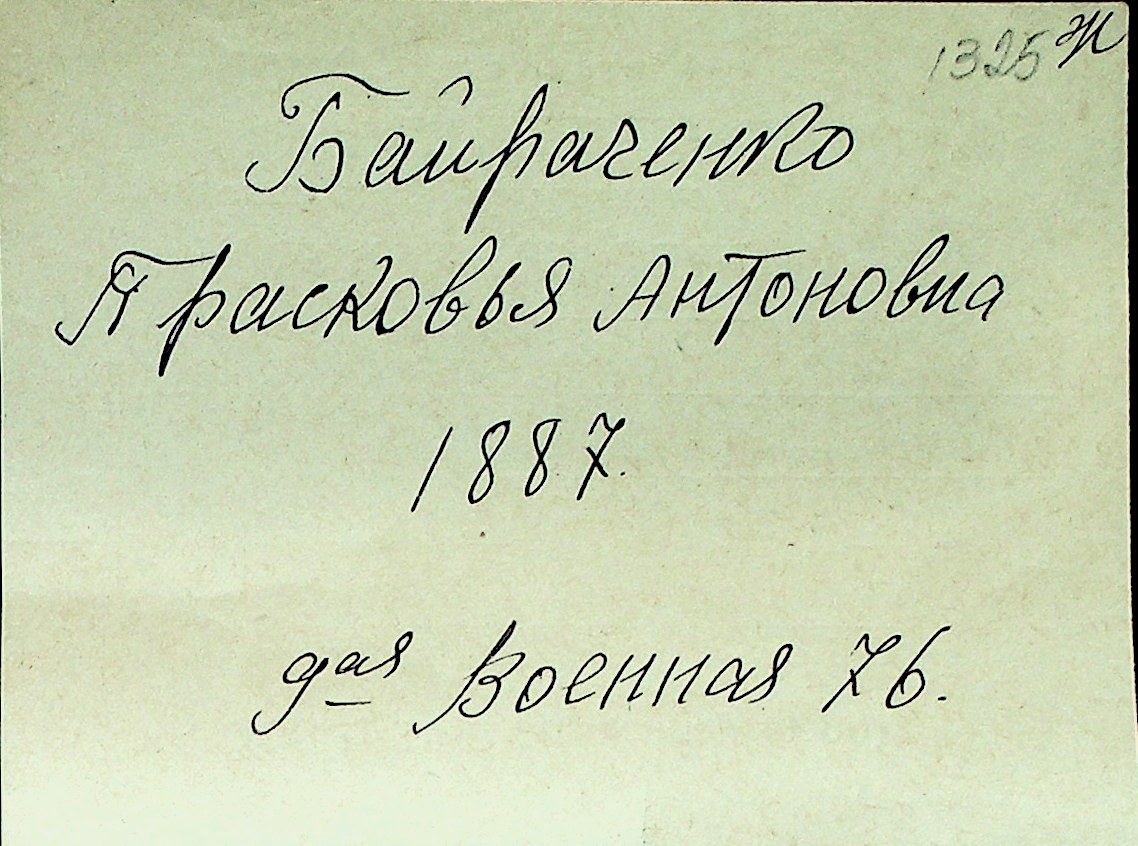 1325 Ж
Байраченко
Прасковья Антоновна
1887.
9ая Военная 76.